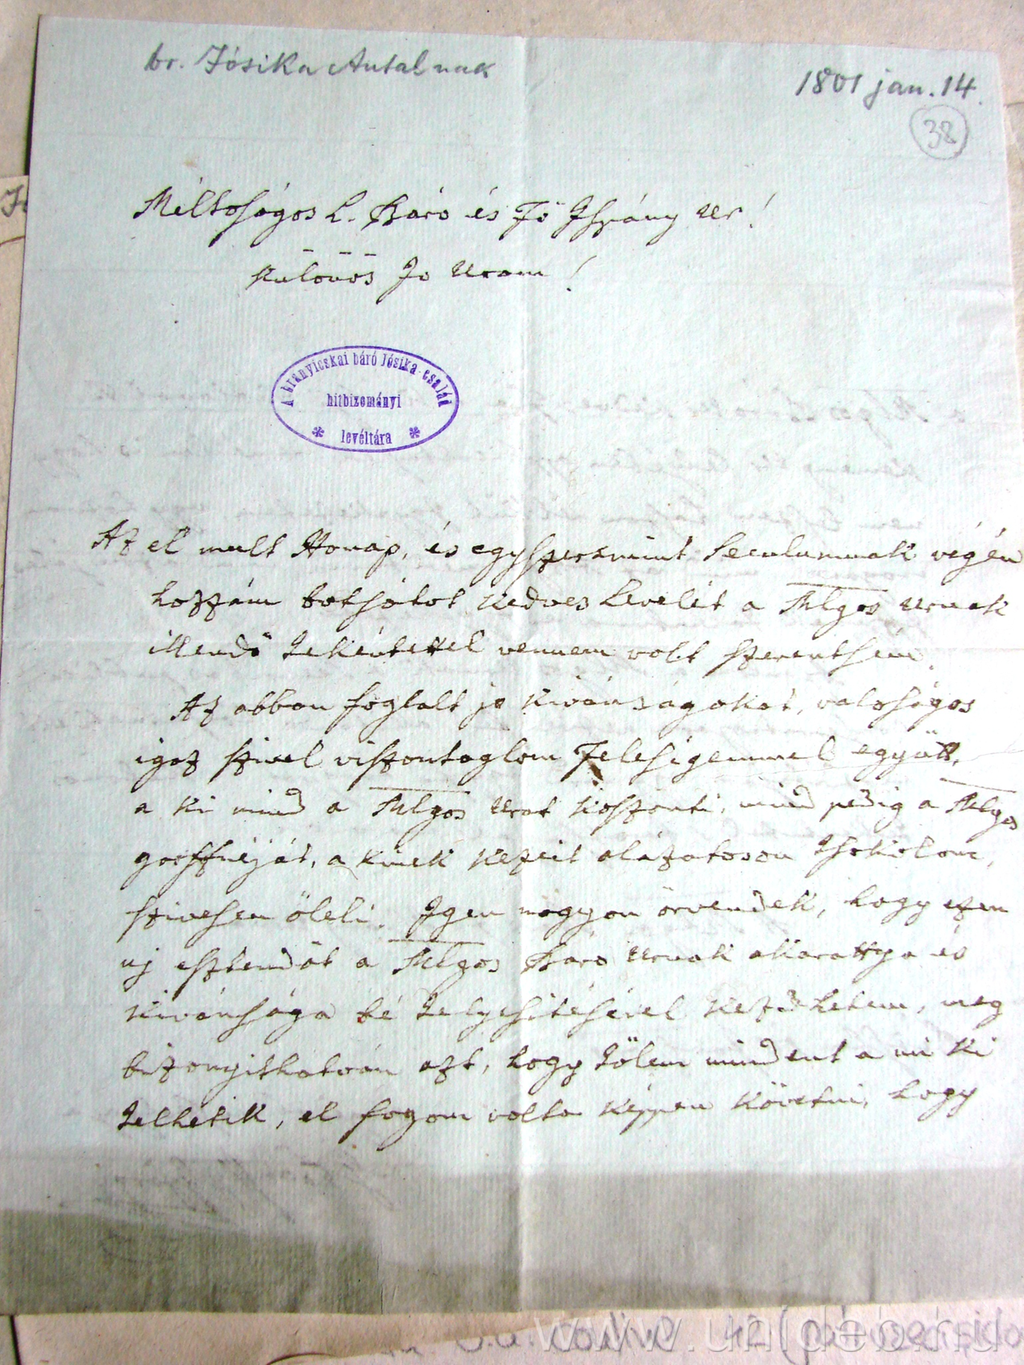 br. Jósika Antalnak
1801 jan. 14.
38
Méltoságos L. Báro és Fö Ispány Ur!
Külonös Jo Uram!
A branyicskai báró Jósika-család
hitbizományi
levéltára
Az el mult Honap, és egyszersmint Seculumnak végén
hozzám botsátot kedves Levelét a Mlgos Urnak
illendö tekéntettel vennem volt szerentsém.
Az abban foglalt jo kivánságokat, valoságos
igaz szivel viszontaglom Feleségemmel együtt,
a ki mind a Mlgos Urat koszönti, mind pedig a Mlgos
groffnéját, a kinek kezeit alázatoson tsokolom,
szivesen öleli. Igen nagyon örvendek, hogy ezen
uj esztendöt a Mlgos Báro Urnak akarattya és
kivánsága bé telyesitésével kezdhetem, meg
bizonyithatván azt, hogy tölem mindent a mi ki
telhetik, el fogom volta képpen követni, hogy
www.unideb